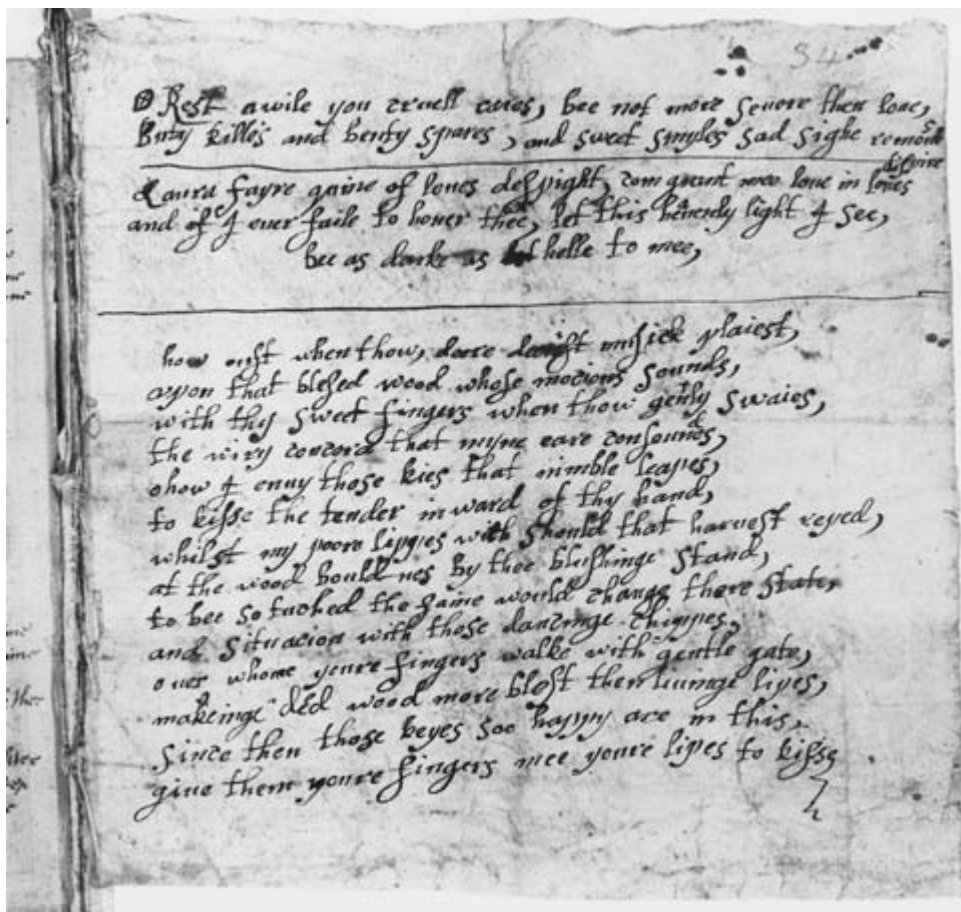 34
O Rest awile you cruell cares, bee not more severe then love,
Buty kill's and beuty spares, and sweet smyles sad sighe remove
Laura fayre quine of loves delight, com grant mee love in loves dispire
and if I ever faile to honer thee, let this hevenly light I see,
bee as darke as hell to mee,
how oust when thow, deere deerist musick plaiest,
upon that blesed wood whose mocions sounds,
with thy sweet fingers when thow gently swaies,
the wiry concord that myne eare consounds,
o how I envy those kies that nimble leapes,
to kisse the tender inward of thy hand,
whilst my poore lippes wich should that harvest reped,
at the wood bouldnes by thee blushinge stand,
to bee so tuched the faine would change there state,
and situacion with those dancinge chippes,
over whome youre fingers walke with gentle gate,
makeinge ded wood more blest then livinge lipes,
since then those keyes soo happy are in this,
give them youre fingers mee youre lipes to kisse